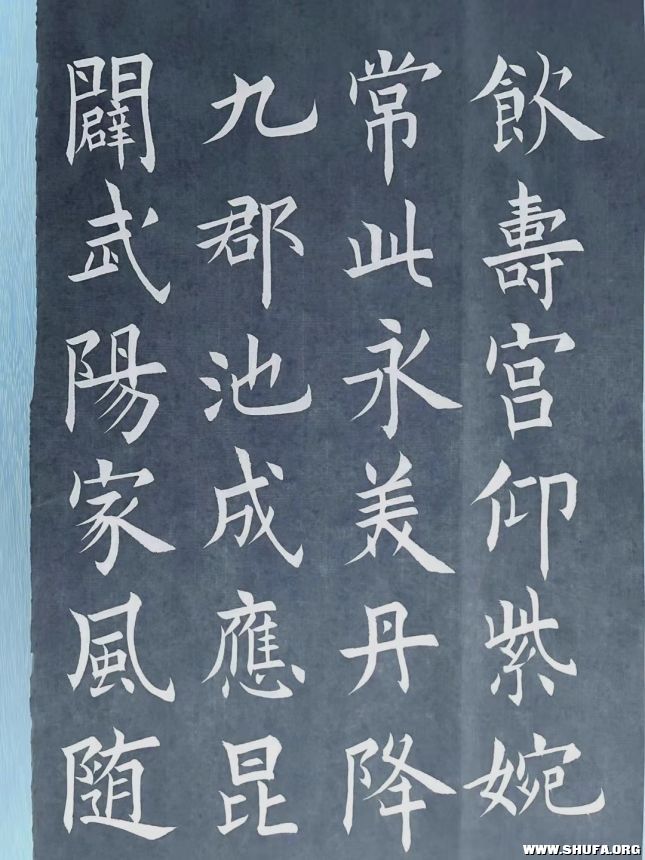 飲壽宮仰紫婉
常此永美丹降
九郡池成應昆
闢武陽家風随
WWW.SHUFA.ORG